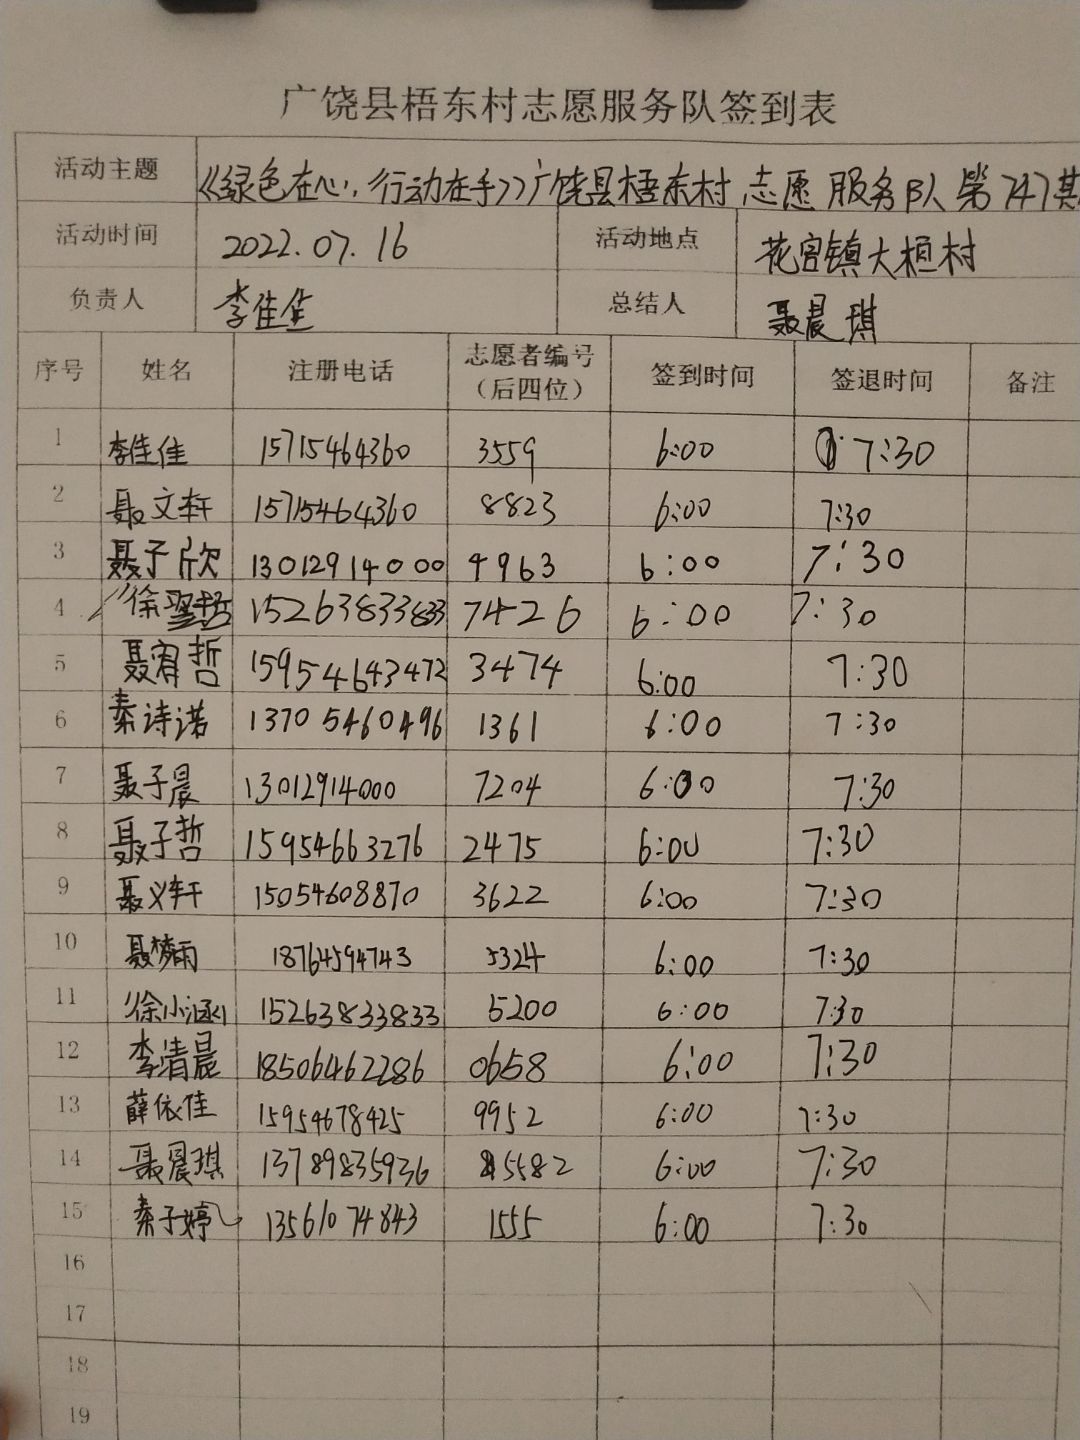 广饶县梧东村志愿服务队签到表
活动主题 《绿色在心,行动在手》广饶县梧东村志愿服务队第747期
活动时间 2022.07.16 活动地点 花官镇大桓村
负责人 李佳佳 总结人 聂晨琪
序号 姓名 注册电话 志愿者编号（后四位） 签到时间 签退时间 备注
1 李佳佳 15715464360 3559 6:00 7:30
2 聂文轩 15715464360 8823 6:00 7:30
3 聂子欣 13012914000 4963 6:00 7:30
4 徐翌哲 15263833833 7426 6:00 7:30
5 聂宥哲 15954643472 3474 6:00 7:30
6 秦诗诺 13705460496 1361 6:00 7:30
7 聂子晨 13012914000 7204 6:00 7:30
8 聂子哲 15954663276 2475 6:00 7:30
9 聂义轩 15054608870 3622 6:00 7:30
10 聂梦雨 18764594743 5324 6:00 7:30
11 徐小涵 15263833833 5200 6:00 7:30
12 李清晨 18506462286 0658 6:00 7:30
13 薛依佳 15954678425 9952 6:00 7:30
14 聂晨琪 13789835936 5582 6:00 7:30
15 秦子婷 13561074843 1555 6:00 7:30
16
17
18
19